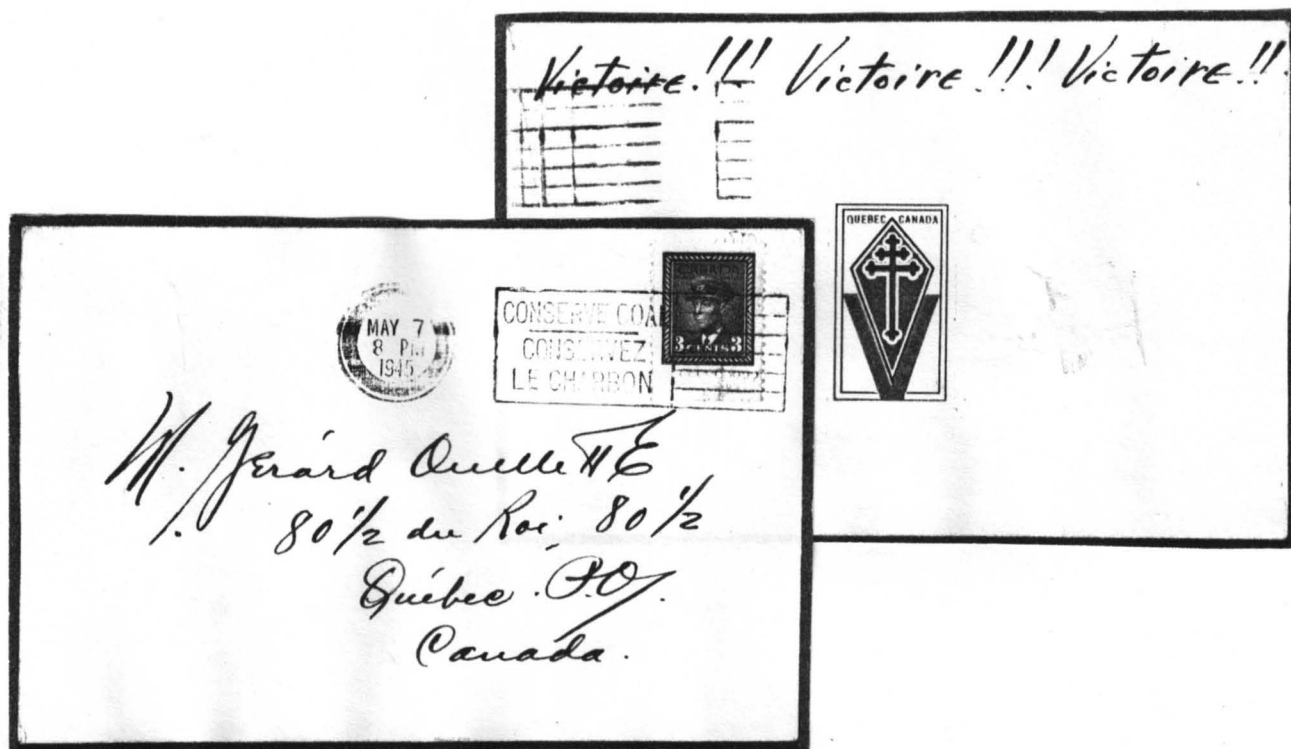 Victoire!!! Victoire!!! Victoire!!
QUEBEC CANADA
MAY 7
8 PM
1945
CONSERVE COAL
CONSERVEZ
LE CHARBON
CANADA
3 CENTS 3
M. Gérard Ouellette
80 1/2 du Roi 80 1/2
Québec. P.Q.
Canada.